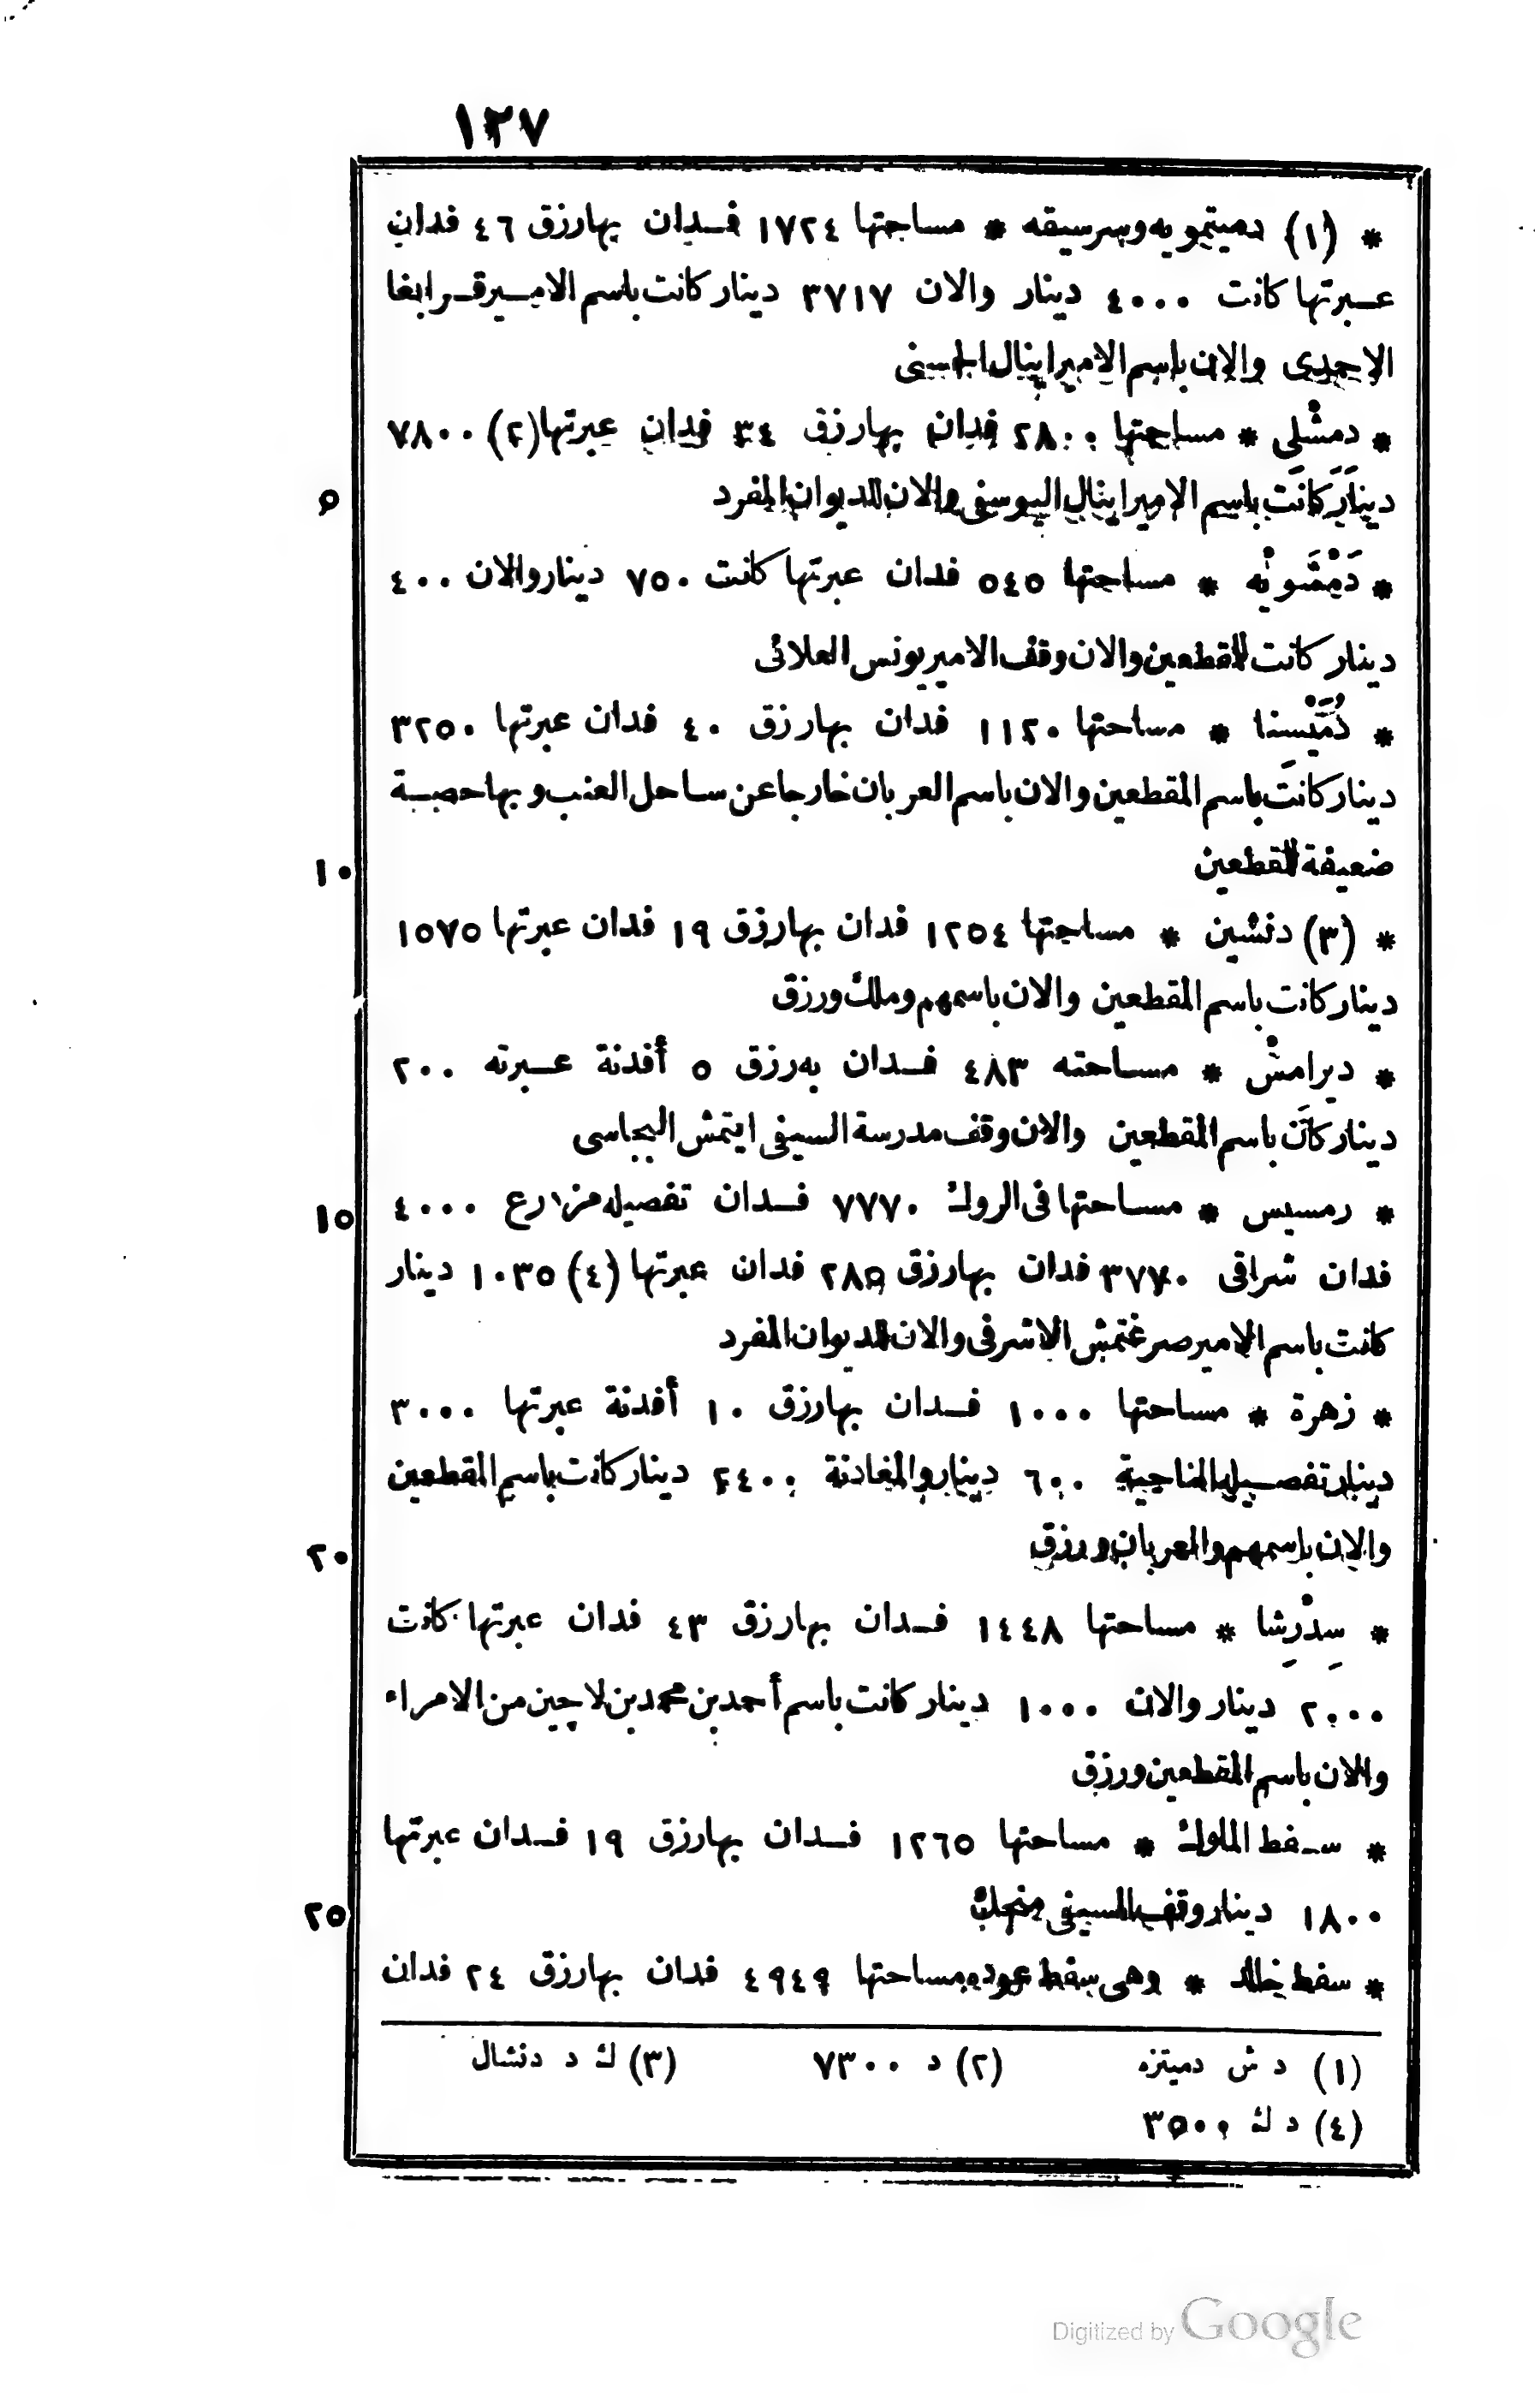 ١٢٧
* (١) دميتمويه وسرسيقه * مساحتها ١٧٢٤ فدان بها رزق ٤٦ فدان
عبرتها كانت ٤٠٠٠ دينار والان ٣٧١٧ دينار كانت باسم الامير قرابغا
الاحمدى والان باسم الامير اينال الحسنى
* دمشْلى * مساحتها ٢٨٠٠ فدان بها رزق ٣٤ فدان عبرتها (٢) ٧٨٠٠
٥ دينار كانت باسم الامير اينال اليوسفى والان للديوان المفرد
* دَمْشَويْه * مساحتها ٥٤٥ فدان عبرتها كانت ٧٥٠ دينار والان ٤٠٠
دينار كانت للمقطعين والان وقف الامير يونس العلائى
* دُمَيْسنا * مساحتها ١١٢٠ فدان بها رزق ٤٠ فدان عبرتها ٣٢٥٠
دينار كانت باسم المقطعين والان باسم العربان خارجا عن ساحل العنب وبها حصة
١٠ ضعيفة للمقطعين
* (٣) دنشين * مساحتها ١٢٥٤ فدان بها رزق ١٩ فدان عبرتها ١٥٧٥
دينار كانت باسم المقطعين والان باسمهم وملك ورزق
* ديرامسْ * مساحته ٤٨٣ فدان به رزق ٥ أفدنة عبرته ٢٠٠
دينار كان باسم المقطعين والان وقف مدرسة السيفى ايتمش البجاسى
١٥ * رمسيس * مساحتها فى الروك ٧٧٧٠ فدان تفصيله مزارع ٤٠٠٠
فدان شراقى ٣٧٧٠ فدان بها رزق ٢٨٥ فدان عبرتها (٤) ١٠٣٥ دينار
كانت باسم الامير صرغتمش الاشرفى والان للديوان المفرد
* زهرة * مساحتها ١٠٠٠ فدان بها رزق ١٠ أفدنة عبرتها ٣٠٠٠
دينار تفصيله الناحية ٦٠٠ دينار والمغادنة ٢٤٠٠ دينار كانت باسم المقطعين
٢٠ والان باسمهم والعربان ورزق
* سِدْرِشا * مساحتها ١٤٤٨ فدان بها رزق ٤٣ فدان عبرتها كانت
٢٠٠٠ دينار والان ١٠٠٠ دينار كانت باسم أحمد بن محمد بن لاجين من الامراء
والان باسم المقطعين ورزق
* سفط الملوك * مساحتها ١٢٦٥ فدان بها رزق ١٩ فدان عبرتها
٢٥ ١٨٠٠ دينار وقف السيفى منجك
* سفط خالد * وهى سفط عوده مساحتها ٤٩٤٩ فدان بها رزق ٢٤ فدان
(١) د ش دميتزه (٢) د ٧٣٠٠ (٣) ك د دنشال
(٤) د ك ٣٥٠٠
Digitized by Google